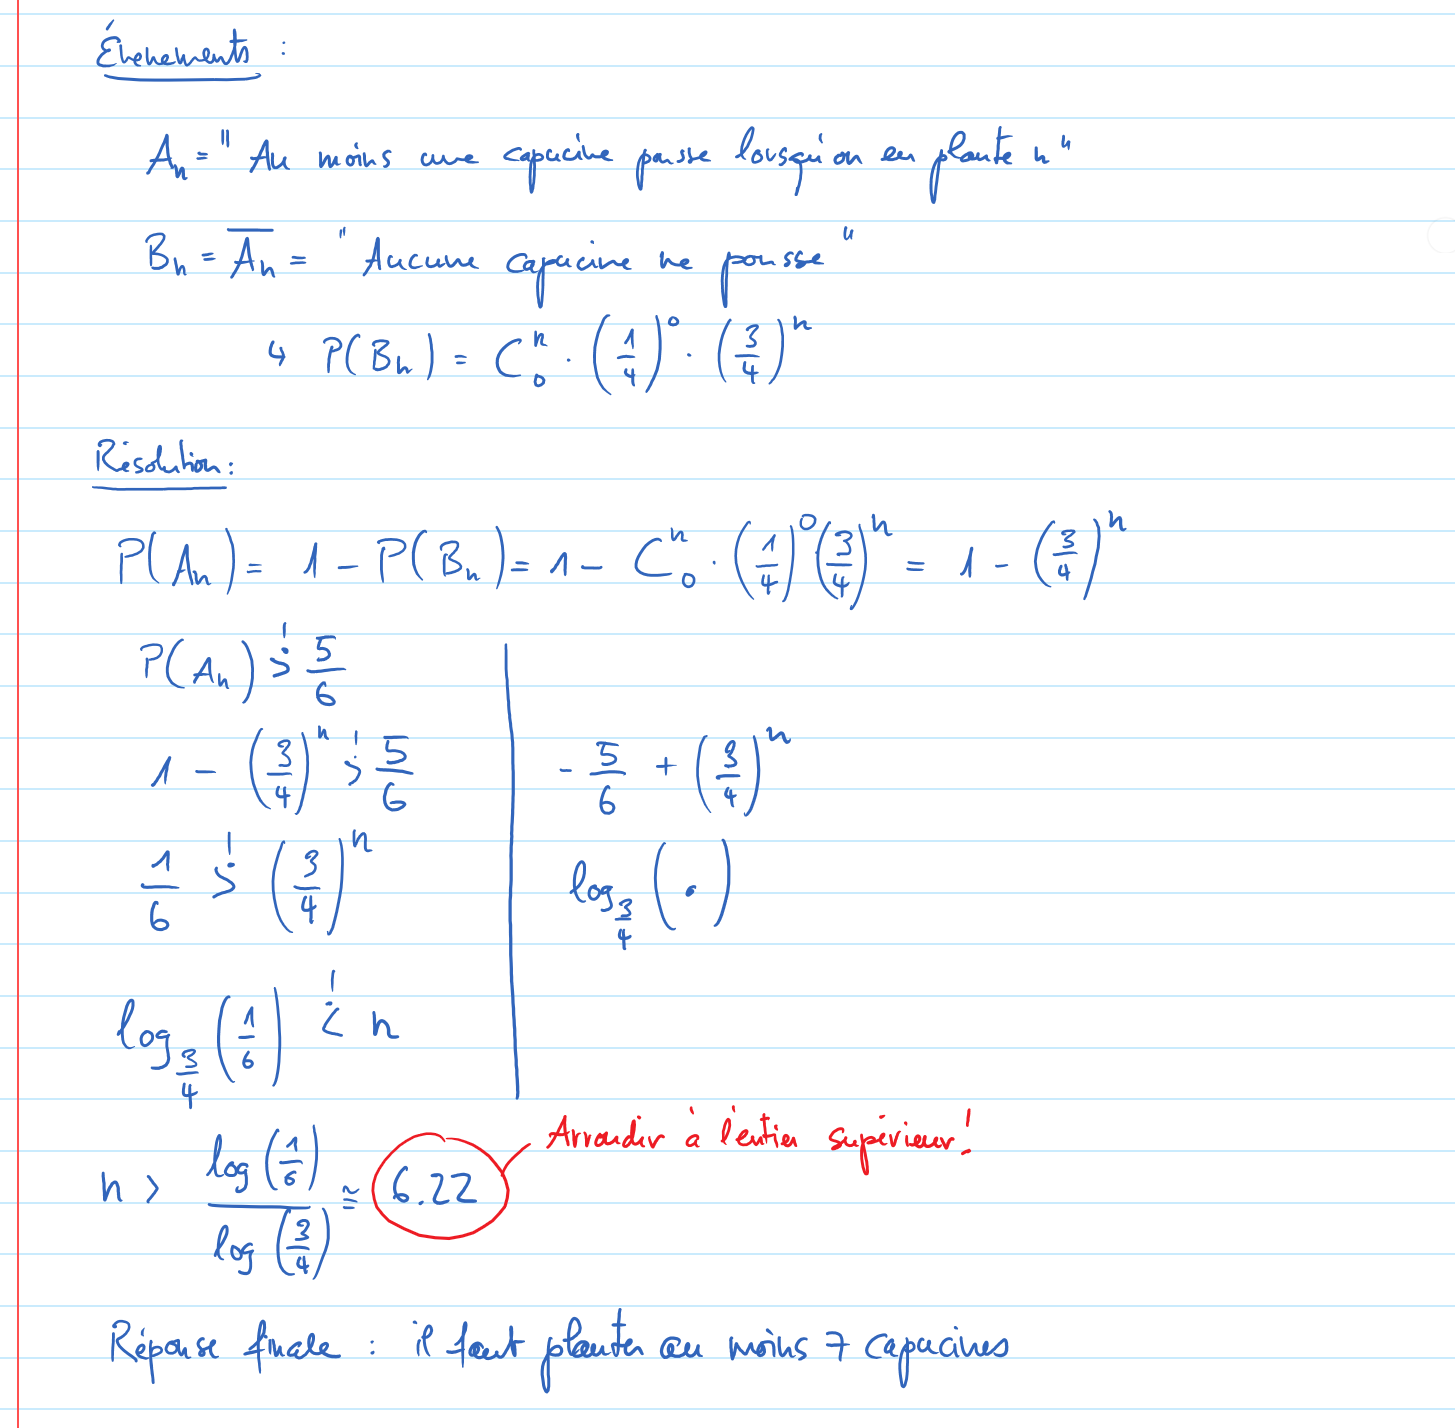 Évenements :
Aₙ = " Au moins une capucine pousse lorsqu'on en plante n "
Bₙ = A̅ₙ̅ = " Aucune capucine ne pousse "
↳ P(Bₙ) = C₀ⁿ · (1/4)⁰ · (3/4)ⁿ
Résolution :
P(Aₙ) = 1 - P(Bₙ) = 1 - C₀ⁿ · (1/4)⁰ (3/4)ⁿ = 1 - (3/4)ⁿ
P(Aₙ) >! 5/6
1 - (3/4)ⁿ >! 5/6 | - 5/6 + (3/4)ⁿ
1/6 >! (3/4)ⁿ | log_{3/4} ( · )
log_{3/4} (1/6) <! n
Arrondir à l'entier supérieur !
n > log(1/6) / log(3/4) ≅ 6.22
Réponse finale : il faut planter au moins 7 capucines